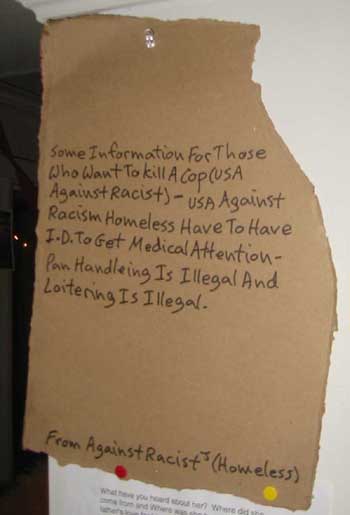 Some Information For Those
Who Want To kill A Cop (USA
Against Racist) - USA Against
Racism Homeless Have To Have
I.D. To Get Medical Attention -
Pan Handleing Is Illegal And
Loitering Is Illegal.
From Against Racists (Homeless)
What have you heard about her? Where did she
come from and Where was she
father's love for